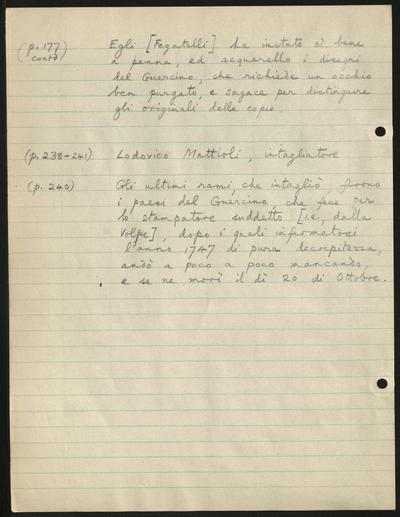 (p. 177 Egli [Fegatelli] ha imitato sì bene
contd) a penna, ed acquarello i disegni
del Guercino, che richiede un occhio
ben purgato, e sagace per distinguere
gli originali delle copie.
(p. 238-241) Lodovico Mattioli, intagliatore
(p. 240) Gli ultimi rami, che intagliò, furono
i paesi del Guercino, che fece per
lo stampatore suddetto [i.e., dalla
Volpe], dopo i quali infermatosi
l'anno 1747 di pura decrepitezza,
andò a poco a poco mancando,
e se ne morì il dì 20 di Ottobre.